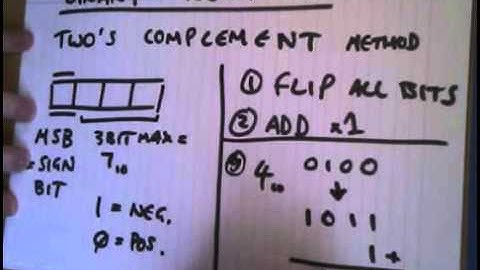 TWO'S COMPLEMENT METHOD
MSB
= SIGN
BIT
3 BIT MAX =
7₁₀
1 = NEG.
0 = POS.
① FLIP ALL BITS
② ADD 1
③ 4₁₀ 0100
↓
1011
1 +